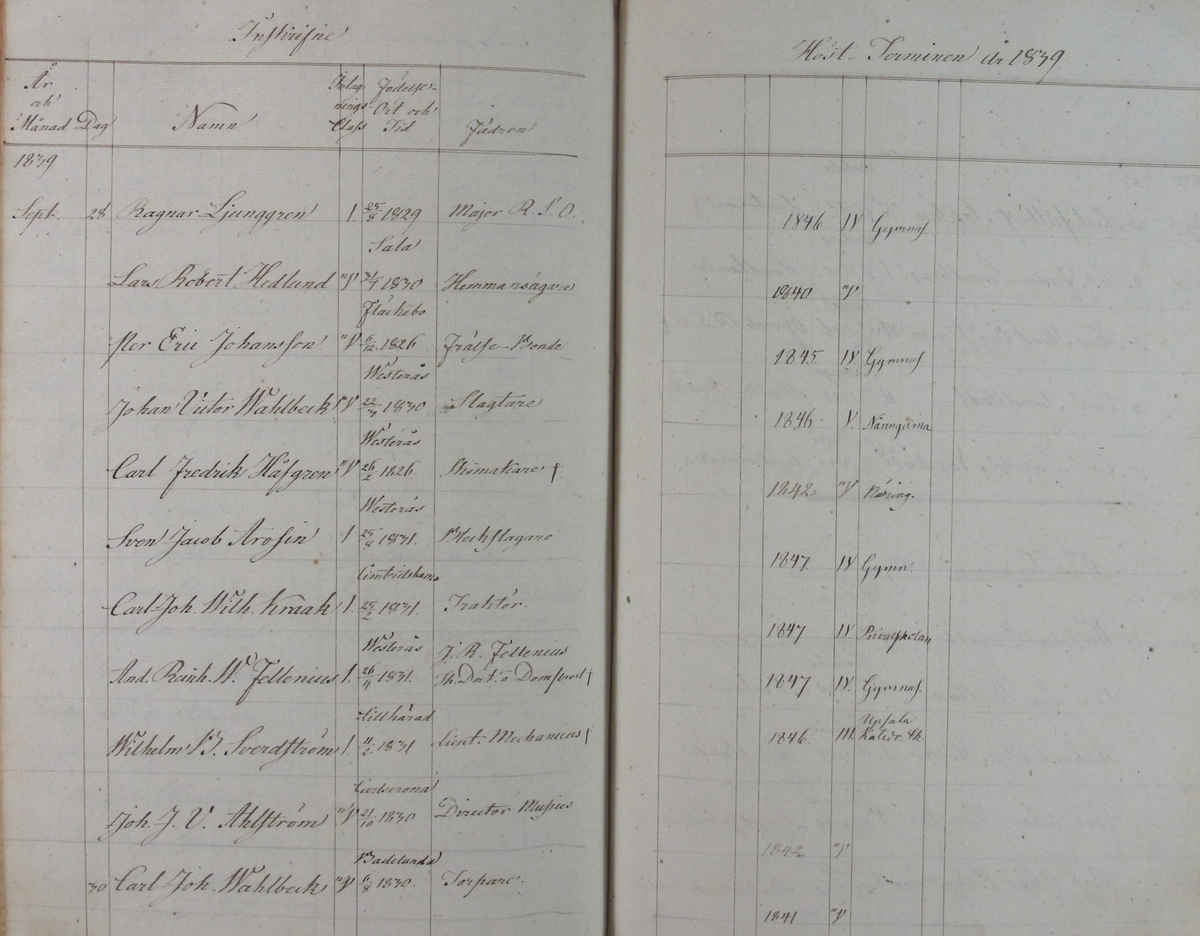 Inskrifne
År och Månad Dag Namn Intag-nings-Class Födelse-Ort och Tid Fädren
1839
Sept. 28 Ragnar Ljunggren 1. 25/8 1829 Major R. S. O.
Sala
Lars Robert Hedlund "V 31/7 1830 Hemmansägare
Fläckebo
Per Eric Johansson "V 6/12 1826 Frälse-Bonde
Westerås
Johan Victor Wahlbeck "V 22/3 1830 Slagtare
Westerås
Carl Fredrik Häfgren "V 26/2 1826 Skomakare †
Westerås
Sven Jacob Arosin 1 25/8 1831. Bleckslagare
Cimbrishamn
Carl Joh. Wilh. Kraak 1. 25/2 1831. Traktör.
Westerås J. R. Fellenius
And. Reinh. W. Fellenius 1. 26/4 1831. Th. Doct. o Domprost †
Lillhärad
Wilhelm B. Sverdström 1. 11/2 1831 Lieut. Mechanicus †
Carlscrona
Joh. J. V. Ahlström "V 21/10 1830 Director Musices
Badelunda
30 Carl Joh. Wahlbeck "V 6/8 1830. Torpare.
Höst-Terminen år 1839
1846 IV Gymnas.
1840 "V
1845 IV Gymnas
1846 V. Näringarna
1842 "V Näring.
1847 IV Gymn.
1847 IV. Privatskolan
1847 IV. Gymnas.
Upsala
1846. III. Katedr. Sk.
1842 "V
1841 "V